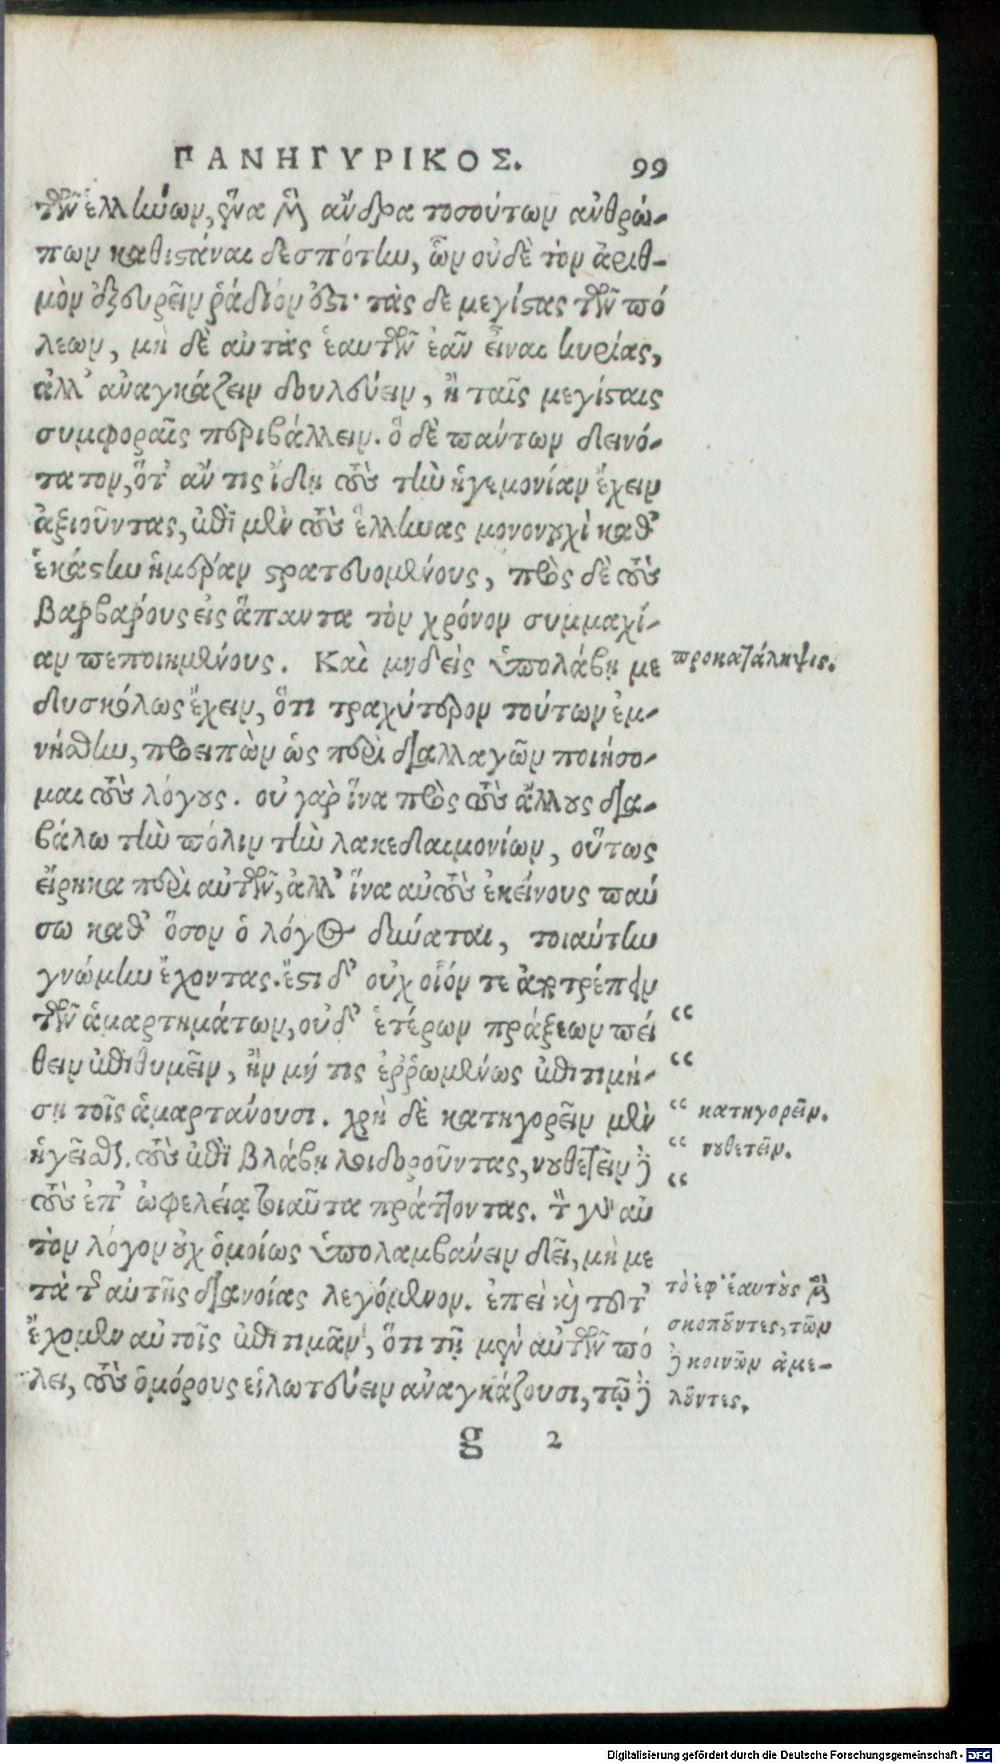 ΠΑΝΗΓΥΡΙΚΟΣ. 99
τῶν ἑλλήνων, ἕνα μὲν ἄνδρα τοσούτων ἀνθρώ-
πων καθιστάναι δεσπότην, ὧν οὐδὲ τὸν ἀριθ-
μὸν ἐξευρεῖν ῥάδιόν ἐστι· τὰς δὲ μεγίστας τῶν πό
λεων, μὴ δὲ αὐτὰς ἑαυτῶν ἐᾶν εἶναι κυρίας,
ἀλλ' ἀναγκάζειν δουλεύειν, ἢ ταῖς μεγίσταις
συμφοραῖς περιβάλλειν. ὃ δὲ πάντων δεινό-
τατον, ὅτ' ἄν τις ἴδῃ τοὺς τὴν ἡγεμονίαν ἔχειν
ἀξιοῦντας, ἐπὶ μὲν τοὺς ἕλληνας μονονουχὶ καθ'
ἑκάστην ἡμέραν στρατευομένους, πρὸς δὲ τοὺς
βαρβάρους εἰς ἅπαντα τὸν χρόνον συμμαχί-
αν πεποιημένους. Καὶ μηδεὶς ὑπολάβῃ με
προκατάληψις.
δυσκόλως ἔχειν, ὅτι τραχύτερον τούτων ἐμ-
νήσθην, προειπὼν ὡς περὶ διαλλαγῶν ποιήσο-
μαι τοὺς λόγους. οὐ γὰρ ἵνα πρὸς τοὺς ἄλλους δια-
βάλω τὴν πόλιν τὴν λακεδαιμονίων, οὕτως
εἴρηκα περὶ αὐτῶν, ἀλλ' ἵνα αὐτοὺς ἐκείνους παύ
σω καθ' ὅσον ὁ λόγος δύναται, τοιαύτην
γνώμην ἔχοντας. ἔστι δ' οὐχ οἷόν τε ἀποτρέπειν
τῶν ἁμαρτημάτων, οὐδ' ἑτέρων πράξεων πεί “
θειν ἐπιθυμεῖν, ἢν μή τις ἐῤῥωμένως ἐπιτιμή- “
σῃ τοῖς ἁμαρτάνουσι. χρὴ δὲ κατηγορεῖν μὲν “ κατηγορεῖν.
ἡγεῖσθαι τοὺς ἐπὶ βλάβῃ λοιδοροῦντας, νουθετεῖν δὲ “ νουθετεῖν.
τοὺς ἐπ' ὠφελείᾳ τοιαῦτα πράττοντας. τὸν γὰρ αὐ “
τὸν λόγον οὐχ ὁμοίως ὑπολαμβάνειν δεῖ, μὴ με
τὰ τῆς αὐτῆς διανοίας λεγόμενον. ἐπεὶ καὶ τοῦτ'
ἔχομεν αὐτοῖς ἐπιτιμᾶν, ὅτι τῇ μὲν αὐτῶν πό
λει, τοὺς ὁμόρους εἱλωτεύειν ἀναγκάζουσι, τῷ δὲ
τὸ ἐφ' ἑαυτοὺς μὲν
σκοποῦντες, τῶν
δὲ κοινῶν ἀμε-
λοῦντες.
g 2
Digitalisierung gefördert durch die Deutsche Forschungsgemeinschaft - DFG